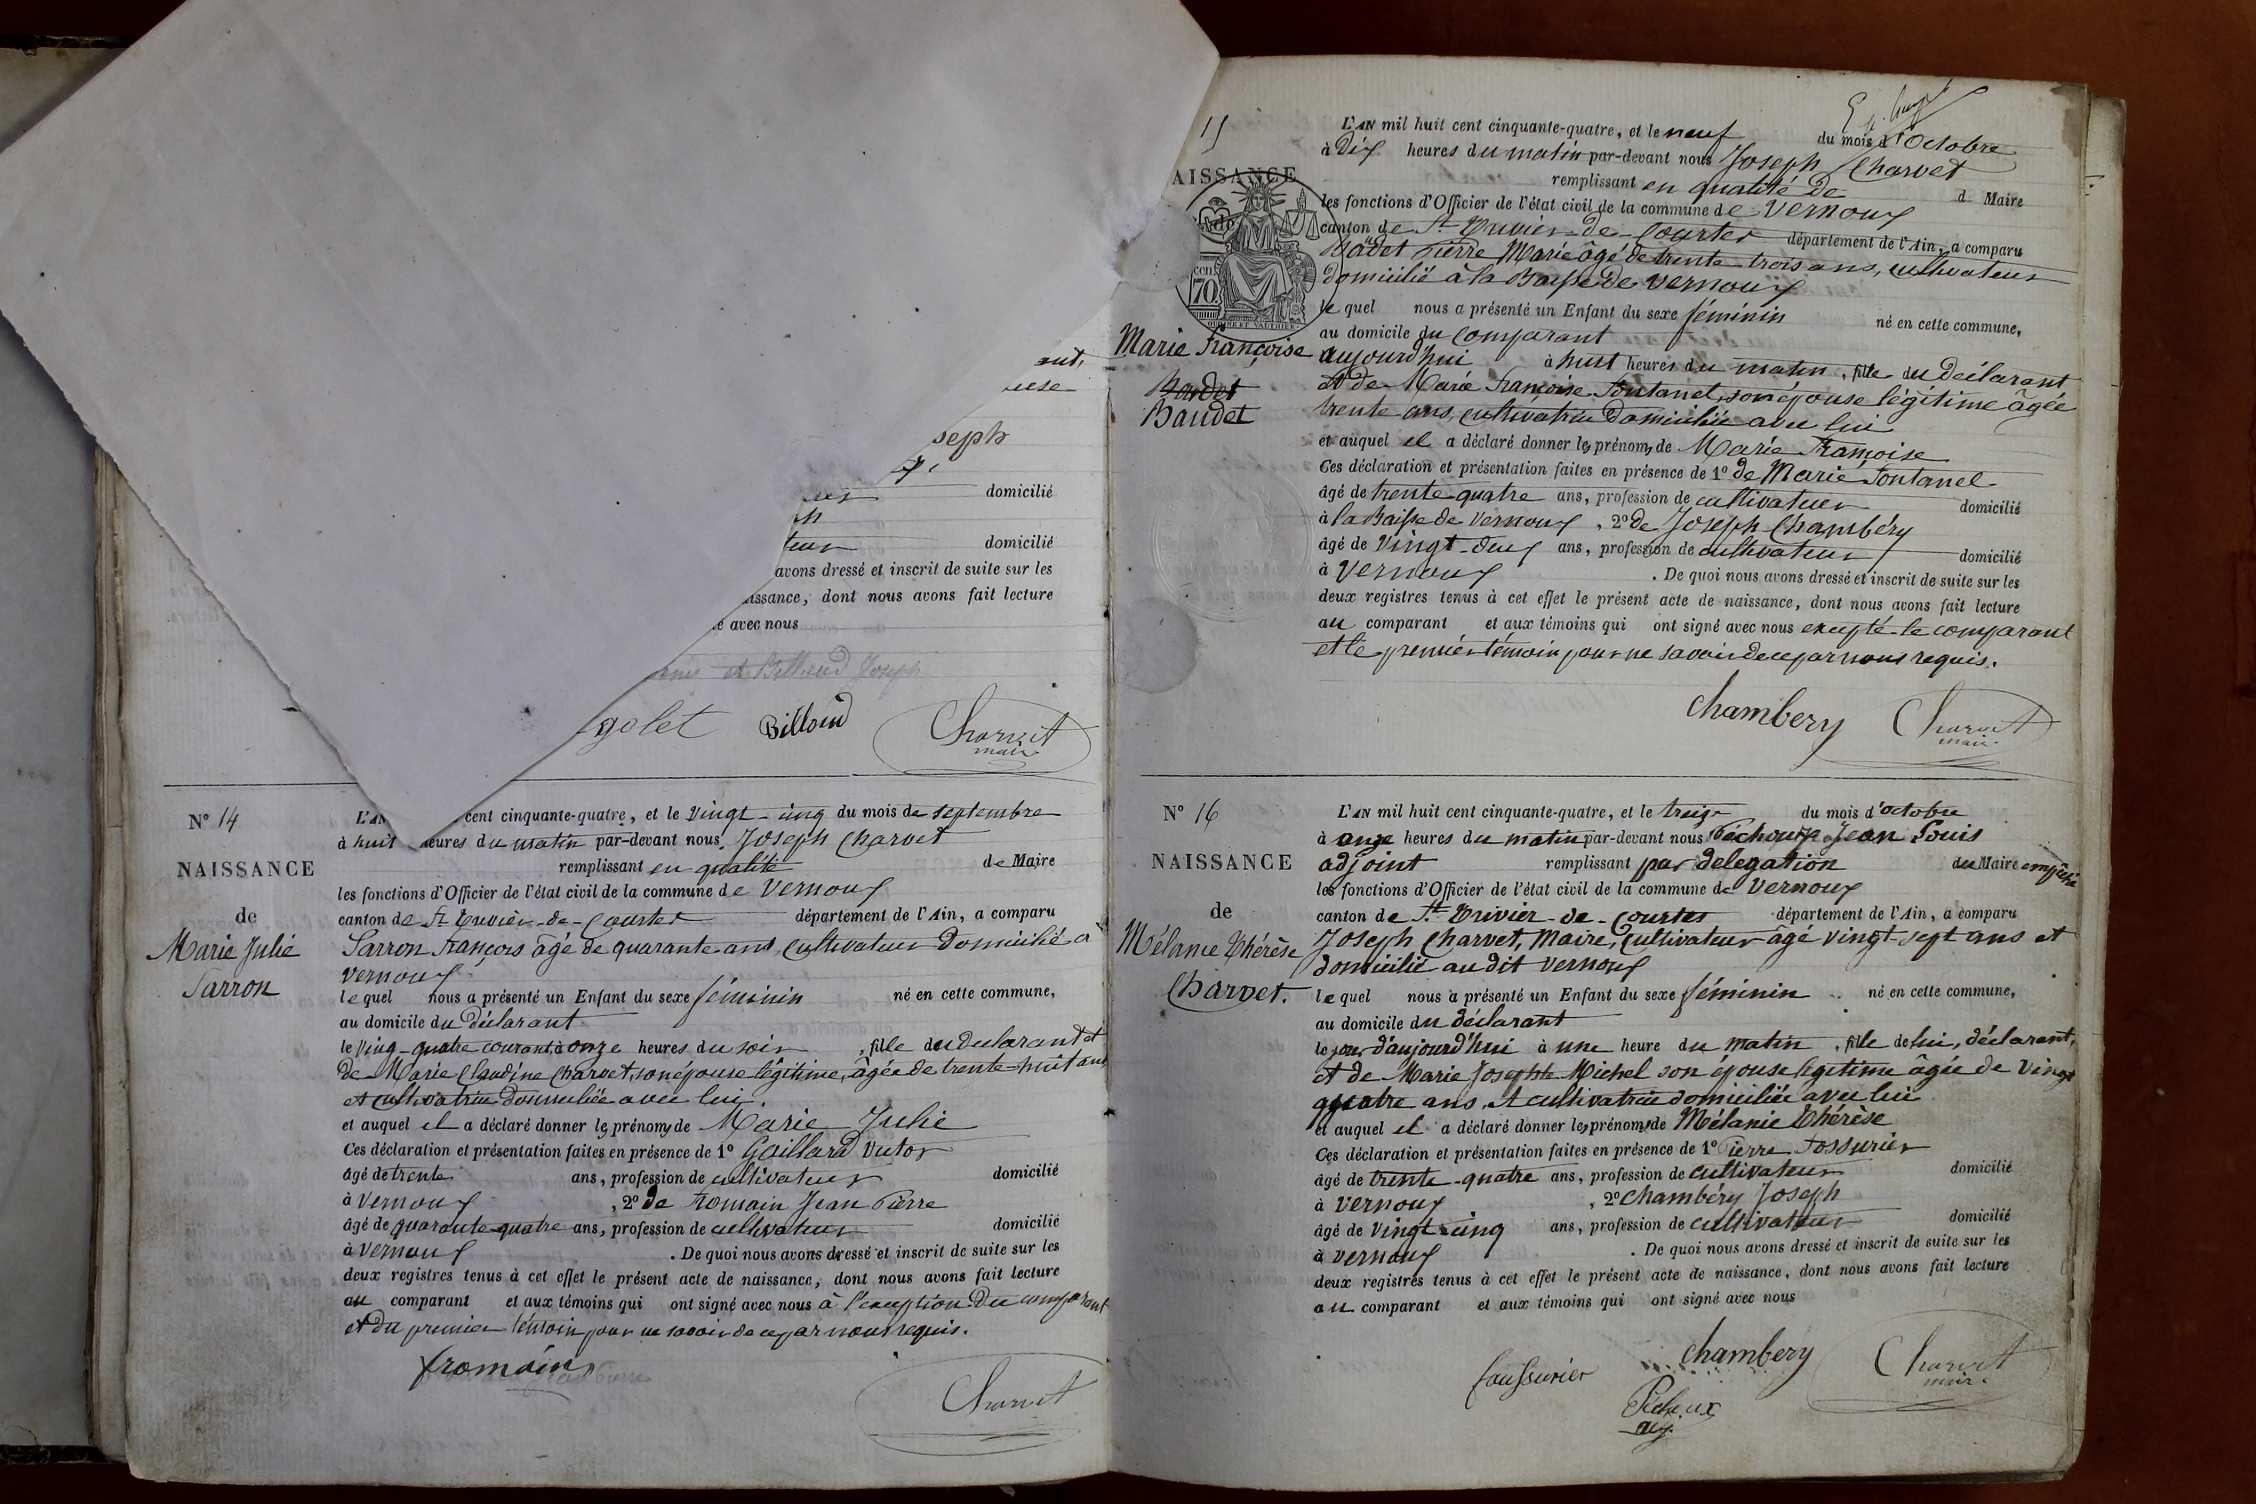 seph
domicilié
domicilié
avons dressé et inscrit de suite sur les
issance, dont nous avons fait lecture
avec nous
et Billoud Joseph
golet Billoud Charvet
maire
N° 14
NAISSANCE
de
Marie Julie
Sarron
L'AN cent cinquante-quatre, et le vingt-cinq du mois de septembre
à huit heures du matin par-devant nous Joseph Charvet
remplissant en qualité de Maire
les fonctions d'Officier de l'état civil de la commune de Vernoux
canton de St Trivier-de-Courtes département de l'Ain, a comparu
Sarron François âgé de quarante ans, cultivateur domicilié à
Vernoux
lequel nous a présenté un Enfant du sexe féminin né en cette commune,
au domicile du déclarant
le ving-quatre courant, à onze heures du soir, fille du déclarant et
de Marie Claudine Charvet, son épouse légitime, âgée de trente-huit ans
et cultivatrice domiciliée avec lui.
et auquel il a déclaré donner les prénoms de Marie Julie
Ces déclaration et présentation faites en présence de 1° Gaillard Victor
âgé de trente ans, profession de cultivateur domicilié
à Vernoux, 2° de Fromain Jean Pierre
âgé de quarante-quatre ans, profession de cultivateur domicilié
à Vernoux. De quoi nous avons dressé et inscrit de suite sur les
deux registres tenus à cet effet le présent acte de naissance, dont nous avons fait lecture
au comparant et aux témoins qui ont signé avec nous à l'exception du comparant
et du premier témoin pour ne savoir de ce par nous requis.
fromain
Charvet
15
AISSANCE
de
cen.
70
Marie Françoise
Baudet
Baudet
L'AN mil huit cent cinquante-quatre, et le neuf du mois d'Octobre
à dix heures du matin par-devant nous Joseph Charvet
remplissant en qualité de d Maire
les fonctions d'Officier de l'état civil de la commune de Vernoux
canton de St Trivier-de-Courtes département de l'Ain, a comparu
Badet Pierre Marie âgé de trente-trois ans, cultivateur
domicilié à la Baisse de Vernoux
le quel nous a présenté un Enfant du sexe féminin né en cette commune,
au domicile du comparant
aujourd'hui à huit heures du matin, fille du déclarant
et de Marie Françoise Fontanel, son épouse légitime âgée
trente ans, cultivatrice domiciliée avec lui
et auquel il a déclaré donner les prénoms de Marie Françoise
Ces déclaration et présentation faites en présence de 1° de Marie Fontanel
âgé de trente-quatre ans, profession de cultivateur domicilié
à la Baisse de Vernoux, 2° de Joseph Chambéry
âgé de vingt-deux ans, profession de cultivateur domicilié
à Vernoux. De quoi nous avons dressé et inscrit de suite sur les
deux registres tenus à cet effet le présent acte de naissance, dont nous avons fait lecture
au comparant et aux témoins qui ont signé avec nous excepté le comparant
et le premier témoin pour ne savoir de ce par nous requis.
Chambery Charvet
maire
N° 16
NAISSANCE
de
Mélanie Thérèse
Charvet.
L'AN mil huit cent cinquante-quatre, et le treize du mois d'octobre
à onze heures du matin par-devant nous Péchoux Jean Louis
adjoint remplissant par délégation du Maire empêché
les fonctions d'Officier de l'état civil de la commune de Vernoux
canton de St Trivier-de-Courtes département de l'Ain, a comparu
Joseph Charvet, Maire, cultivateur âgé vingt-sept ans et
domicilié au dit Vernoux
lequel nous a présenté un Enfant du sexe féminin né en cette commune,
au domicile du déclarant
le jour d'aujourd'hui à une heure du matin, fille de lui, déclarant,
et de Marie Josephte Michel son épouse légitime âgée de vingt
quatre ans et cultivatrice domiciliée avec lui
et auquel il a déclaré donner les prénoms de Mélanie Thérèse
Ces déclaration et présentation faites en présence de 1° Pierre Fossurier
âgé de trente-quatre ans, profession de cultivateur domicilié
à Vernoux, 2° Chambéry Joseph
âgé de vingt-cinq ans, profession de cultivateur domicilié
à Vernoux. De quoi nous avons dressé et inscrit de suite sur les
deux registres tenus à cet effet le présent acte de naissance, dont nous avons fait lecture
au comparant et aux témoins qui ont signé avec nous
faussurier Chambery Charvet
maire
Péchoux
adj.